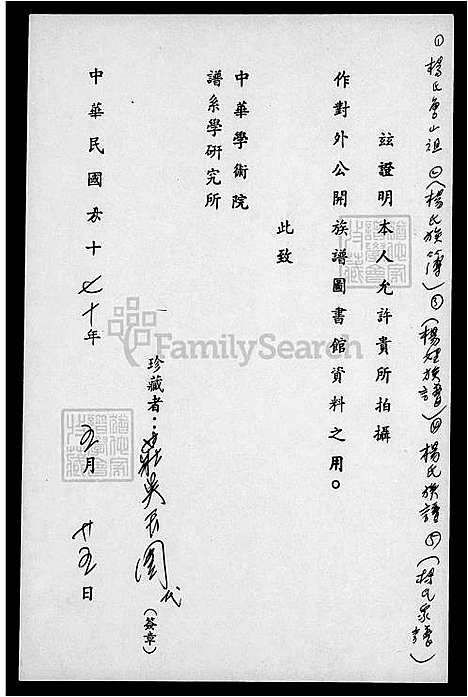 ① 楊氏魯山祖 ②(楊氏族簿) ③(楊姓族譜) ④ 楊氏族譜 ⑤(楊氏家譜)
玆證明本人允許貴所拍攝
作對外公開族譜圖書館資料之用。
此致
中華學術院
譜系學研究所
珍藏者:莊吳 (簽章)
中華民國 十 七十年 五月 廿五日
FamilySearch